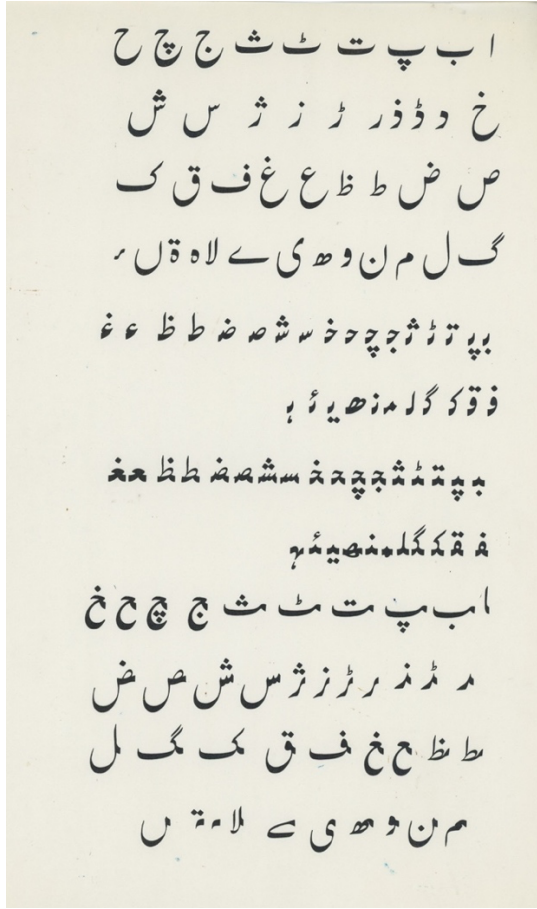 ا ب پ ت ٹ ث ج چ ح
خ د ڈ ذ ر ڑ ز ژ س ش
ص ض ط ظ ع غ ف ق ک
گ ل م ن و ھ ی ے لا ہ ة ں
بـ پـ تـ ٹـ ثـ جـ چـ حـ خـ سـ شـ صـ ضـ طـ ظـ عـ غـ
فـ قـ کـ گـ لـ مـ نـ ھـ یـ ئـ ہـ
ـبـ ـپـ ـتـ ـٹـ ـثـ ـجـ ـچـ ـحـ ـخـ ـسـ ـشـ ـصـ ـضـ ـطـ ـظـ ـعـ ـغـ
ـفـ ـقـ ـکـ ـگـ ـلـ ـمـ ـنـ ـھـ ـیـ ـئـ ـہـ
ـا ـب ـپ ـت ـٹ ـث ـج ـچ ـح ـخ
ـد ـڈ ـذ ـر ـڑ ـز ـژ ـس ـش ـص ـض
ـط ـظ ـع ـغ ـف ـق ـک ـگ ـل
ـم ـن ـو ـھ ـی ـے ـلا ـہ ـة ـں